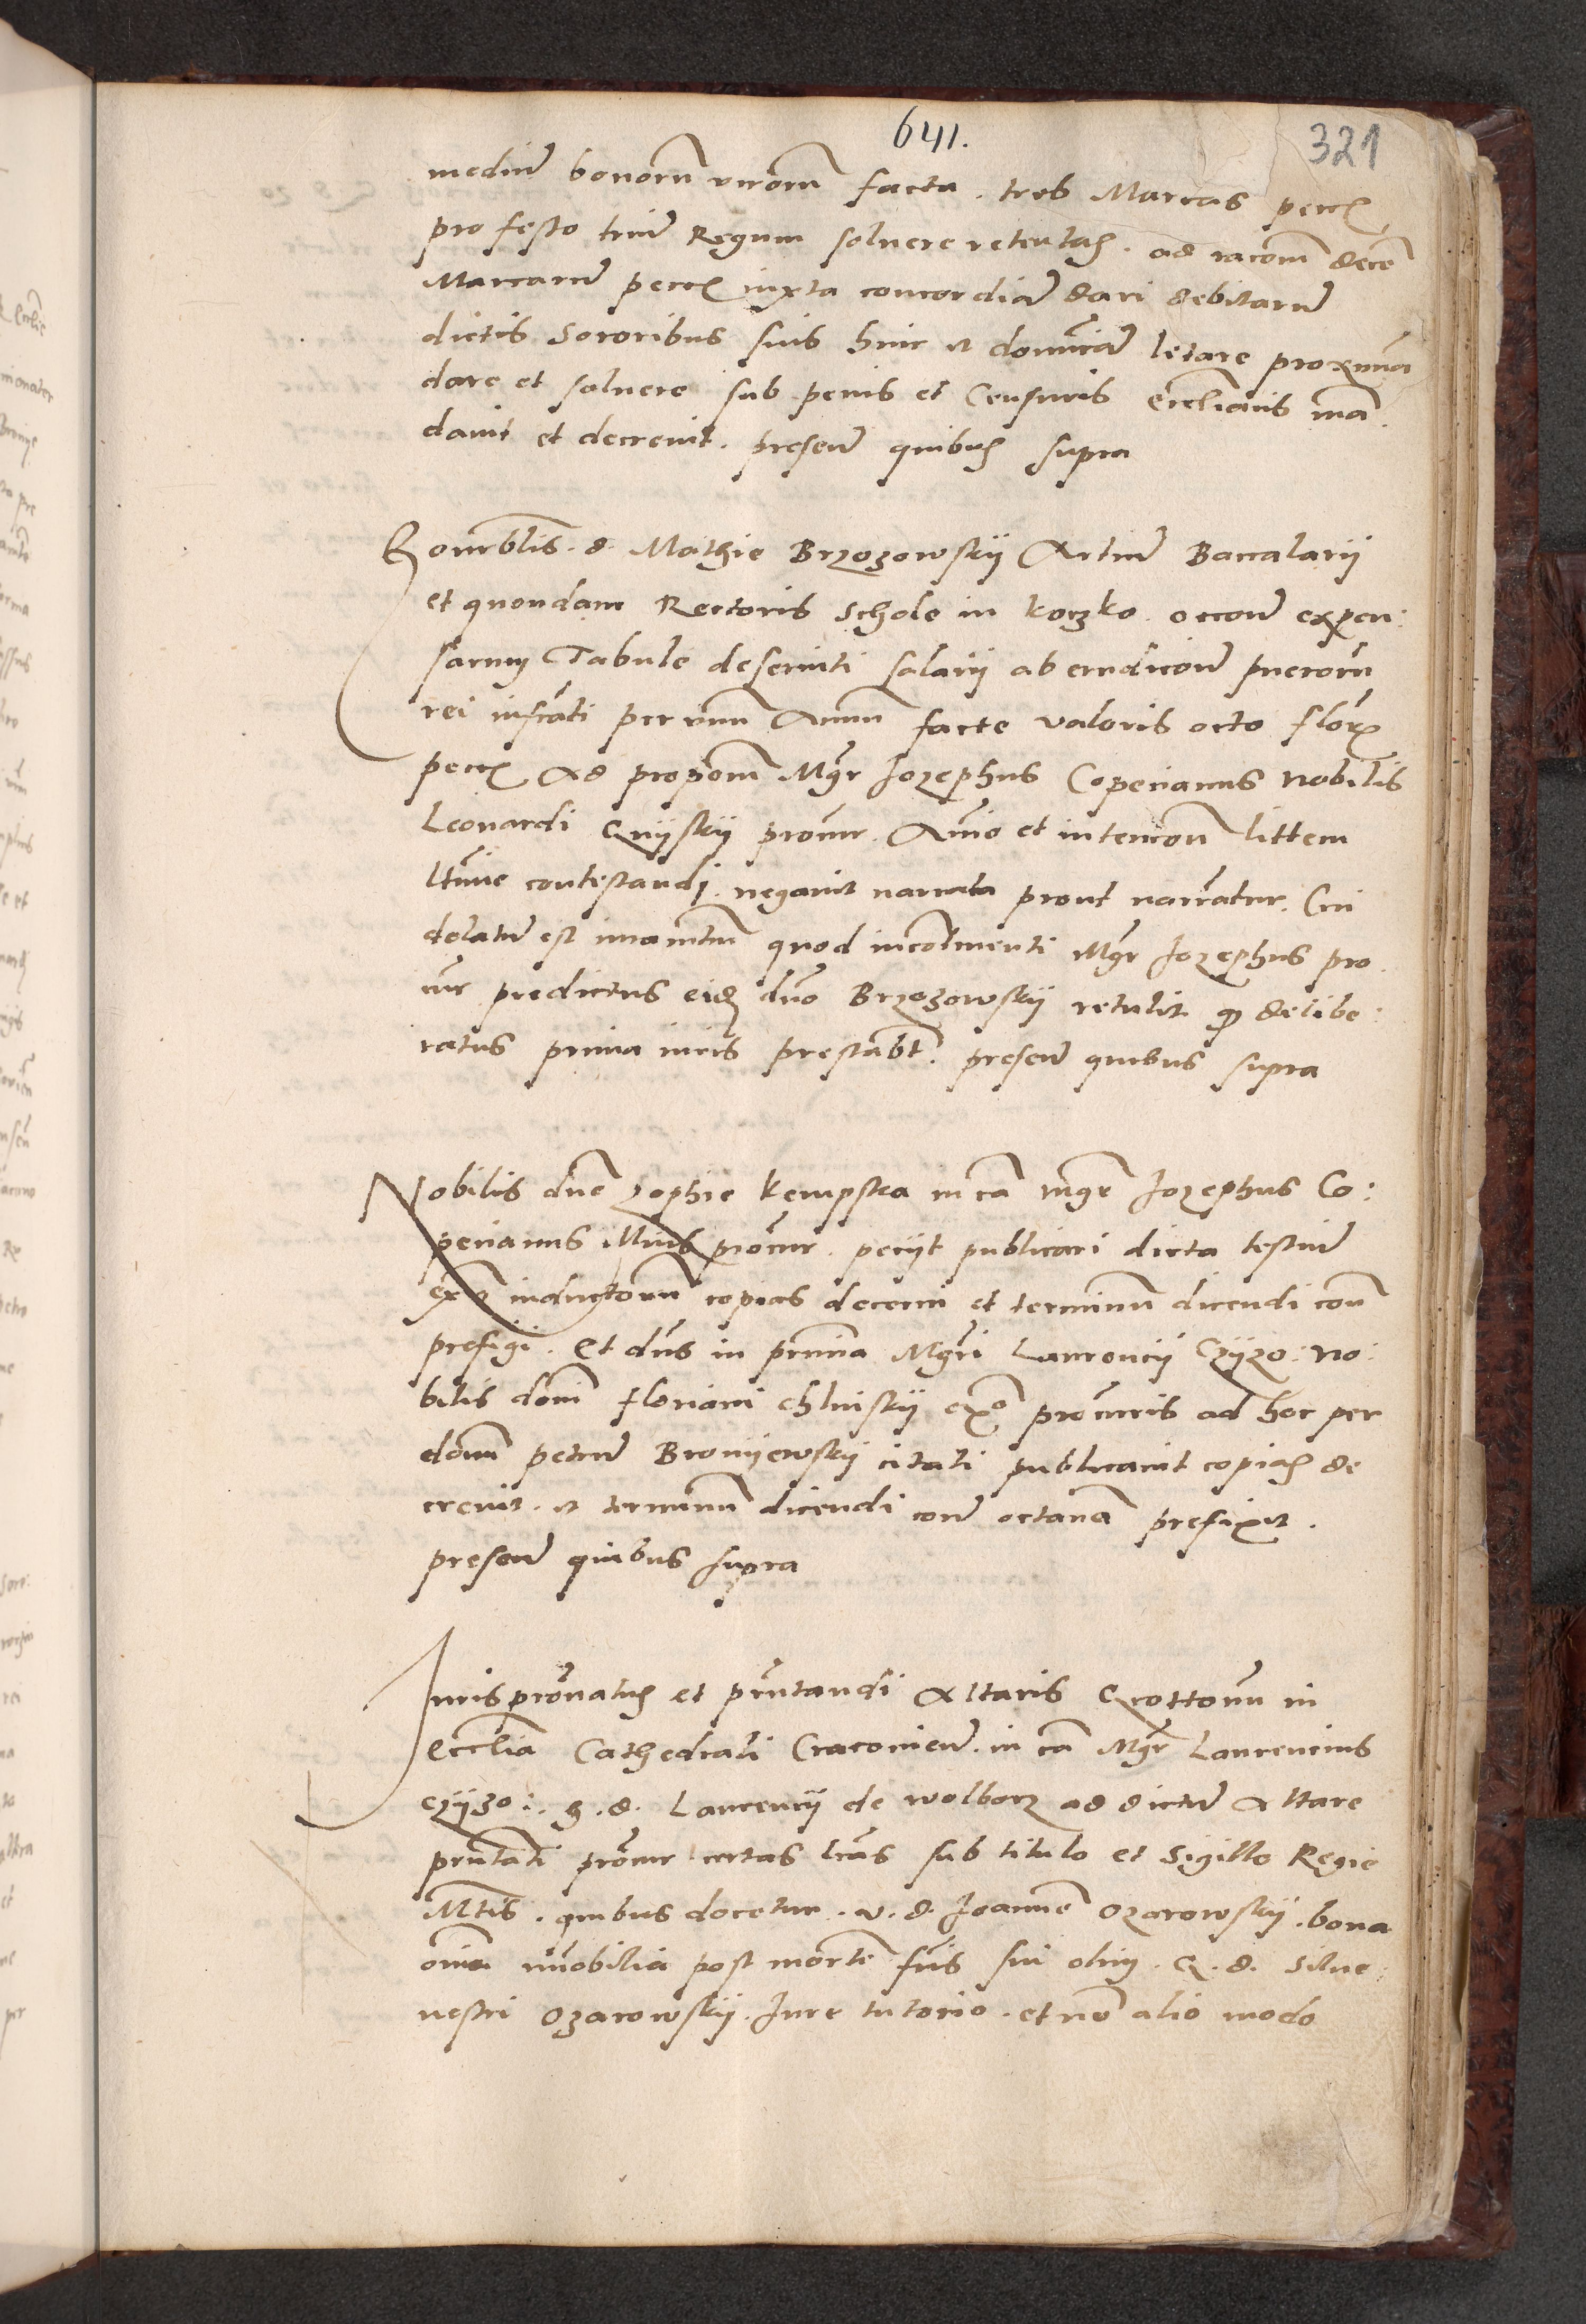 641.
321
mediũ bonorũ virorũ facta. tres Marcas pecc
pro festo triũ Regum soluere retentas. ad racom̃ decẽ
Marcarũ pecc iuxta concordiã dari debitarũ
dictis Sororibus suis hinc et domicã letare proximã
dare et soluere sub penis et Censuris eccl̃iais mã
dauit et decreuit. presen̄ quibus supra
Honor̃blis. d. Mathie Brzozowskÿ Artiũ Baccalarÿ
et quondam Rectoris schole in koczko occoñ expen:
sarum Tabule deseruiti salarÿ ab erudicoñ puerorũ
rei infrãti per vnũ Annũ facte valoris octo floř
pecc Ad propom̃ Mgr̃ Jozephus Coperianus Nobilis
Leonardi Gnÿskÿ procur̃. Animo et intencoñ littem
ltime contestandi. negauit narrata prout narrãtur. Cui
delatũ est iuramẽtũ quod incõlmenti Mgr̃ Jozephus pro
cur̃ predictus eidẽ dño Brzozowskÿ retulit. q̃ delibe:
ratus prima iuris prestabt̃. presen̄ quibus supra
Nobilis dñe Zophie kempska in cã mgr̃ Jozephus Co:
perianus illius procur̃. peciit publicari dicta testiũ
ex inductorũ copias decerni et terminũ dicendi coñ
prefigi. Et dñs in pr̃ntia Mgr̃i Laurencÿ Czÿzo: No:
bilis domi Floriani Chluiskÿ exo procuris ad hoc per
domũ petrũ Bronÿewskÿ citati publicauit copias de
creuit. et terminũ dicendi coñ octauã prefixit.
presen̄ quibus supra
Iurispr̃onatus et pr̃ntandi Altaris Grottonũ in
Eccl̃ia Cathedrali Cracouieñ. in cã Mgr̃ Laurencius
czÿzo:. h. d. Laurencÿ de wolborz ad dictũ Altare
pr̃ntati procur̃ certas lr̃as sub titulo et Sigillo Regie
Mtis. quibus docetur. v. d. Joannẽ Ozarowskÿ. bona
om̃ia im̃obilia post mortẽ fr̃is sui olim. G. d. Silue:
nestri Ozarowskÿ. Iure tutorio. et nõ alio modo